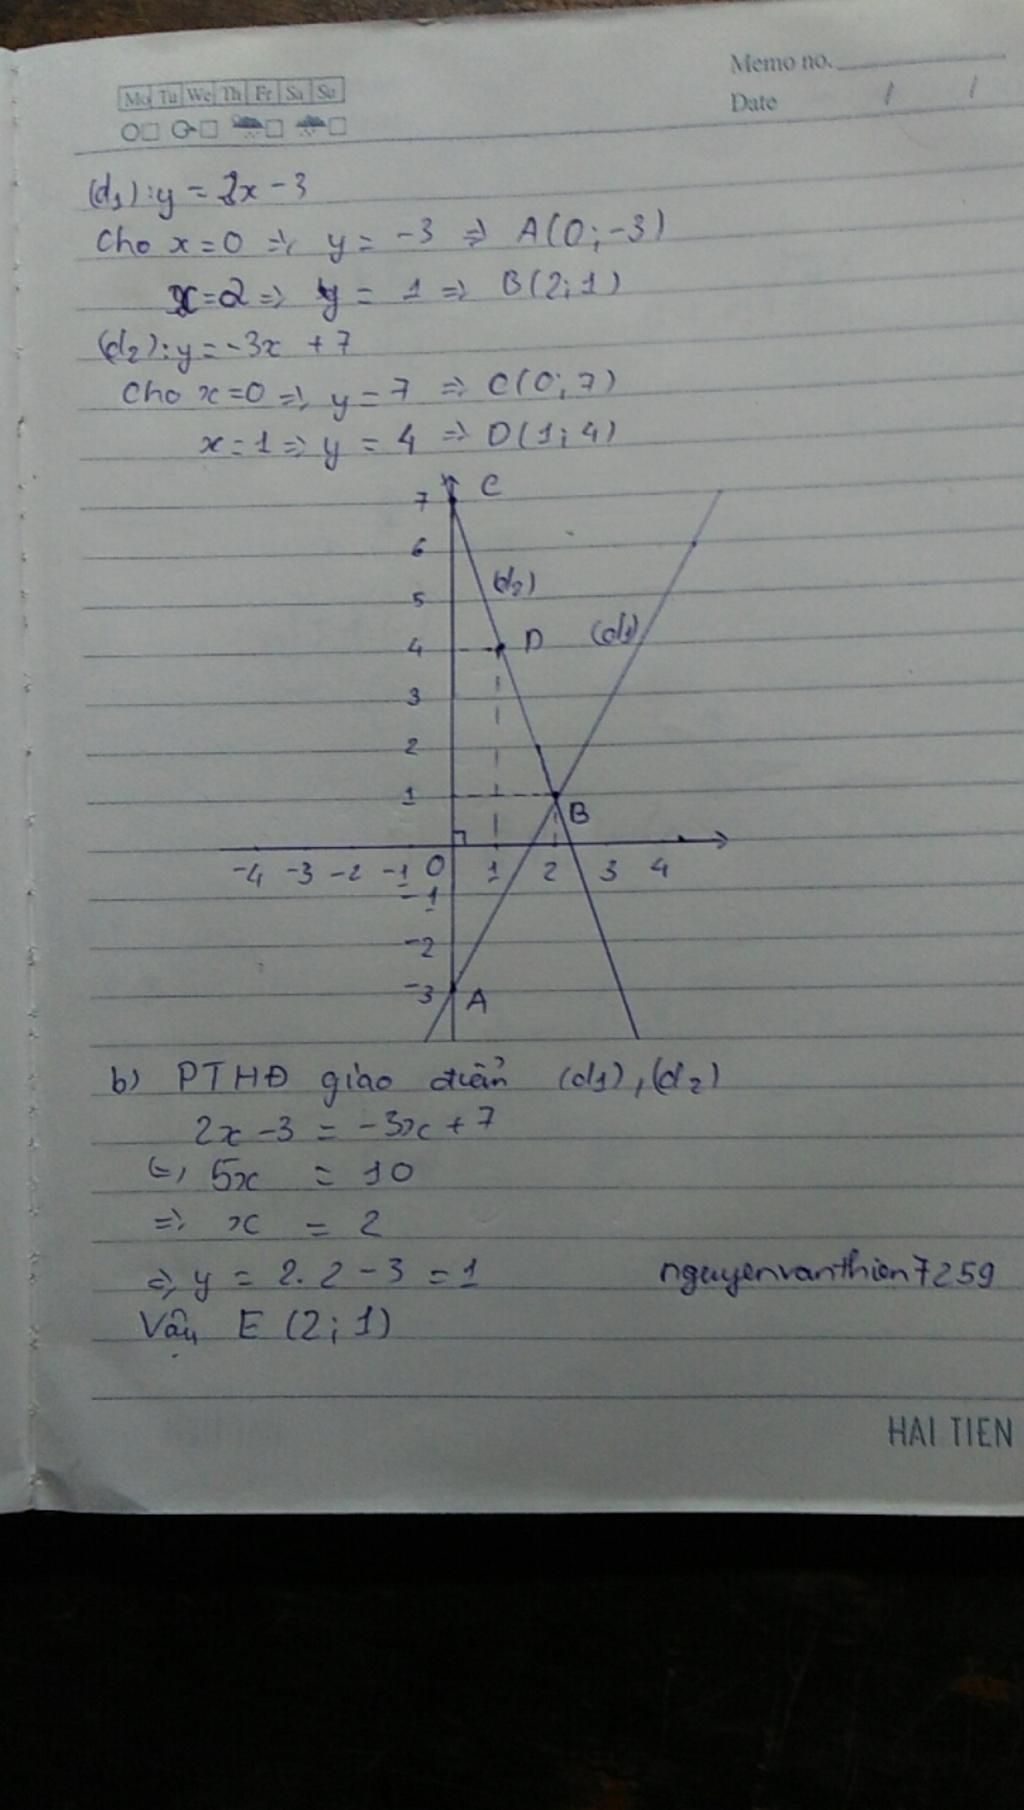 Memo no.
Mo Tu We Th Fr Sa Su
Date / /
(d1): y = 2x - 3
Cho x = 0 => y = -3 => A(0; -3)
x = 2 => y = 1 => B(2; 1)
(d2): y = -3x + 7
Cho x = 0 => y = 7 => C(0; 7)
x = 1 => y = 4 => D(1; 4)
7 C
6
5 (d2)
4 D (d1)
3
2
1
B
-4 -3 -2 -1 0 1 2 3 4
-1
-2
-3 A
b) PTHĐ giao điểm (d1), (d2)
2x - 3 = -3x + 7
<=> 5x = 10
=> x = 2
=> y = 2.2 - 3 = 1
nguyenvanthien7259
Vậy E (2; 1)
HAI TIEN